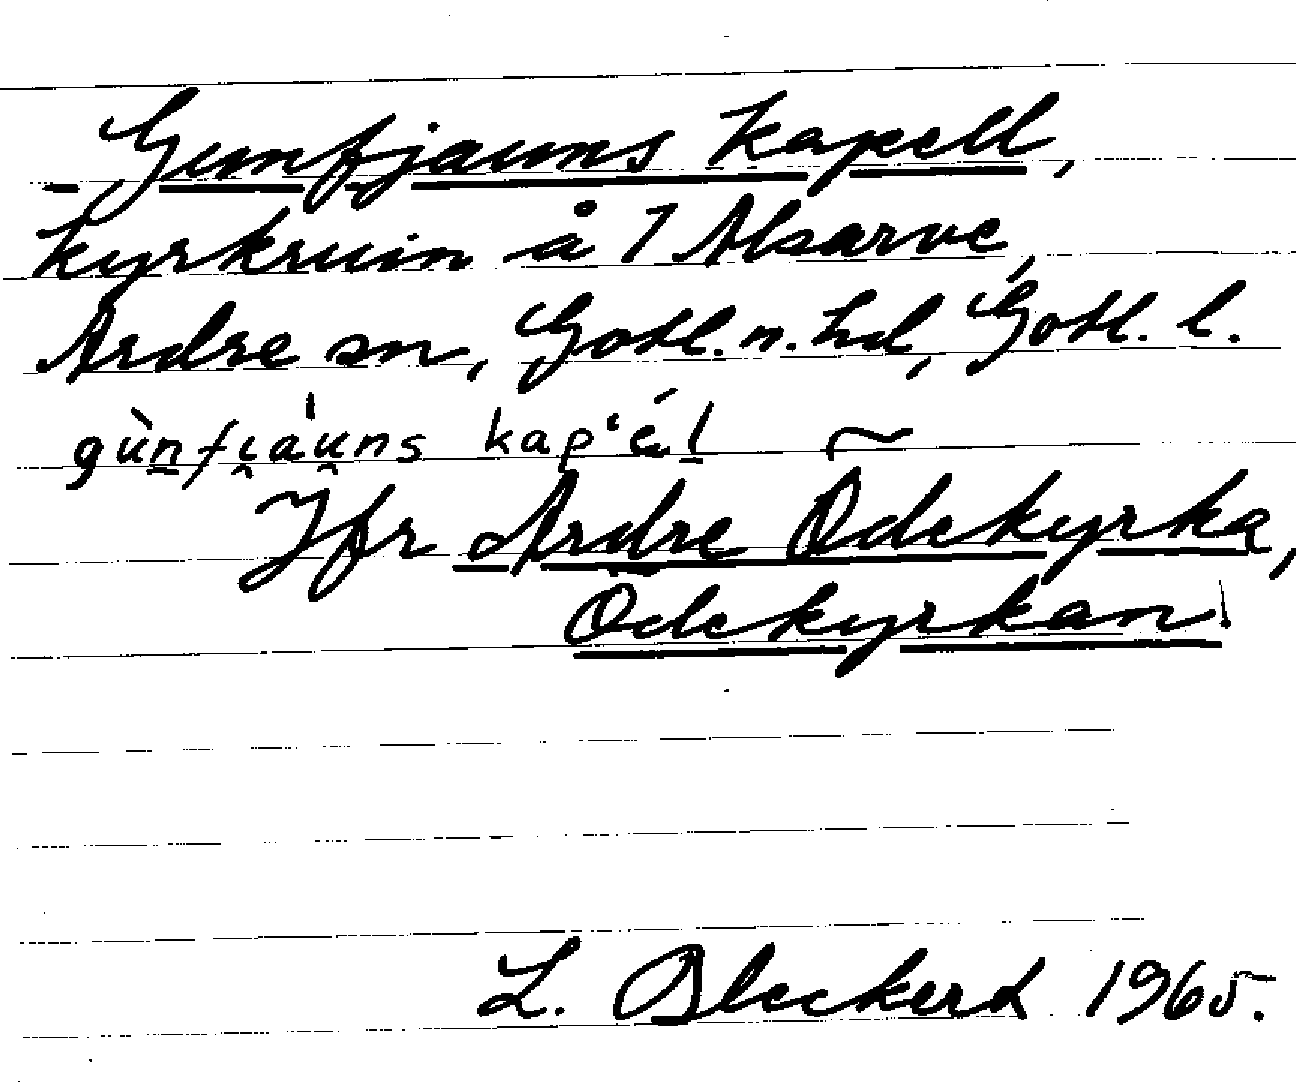 Gunfjauns kapell,
kyrkruin å 1 Alsarve,
Ardre sn, Gotl. n. hd, Gotl. l.
gùn̠fi̯a'u̯ns kap'él̠ ~
Jfr Ardre Ödekyrka,
Ödekyrkan!
L. Bleckert 1965.